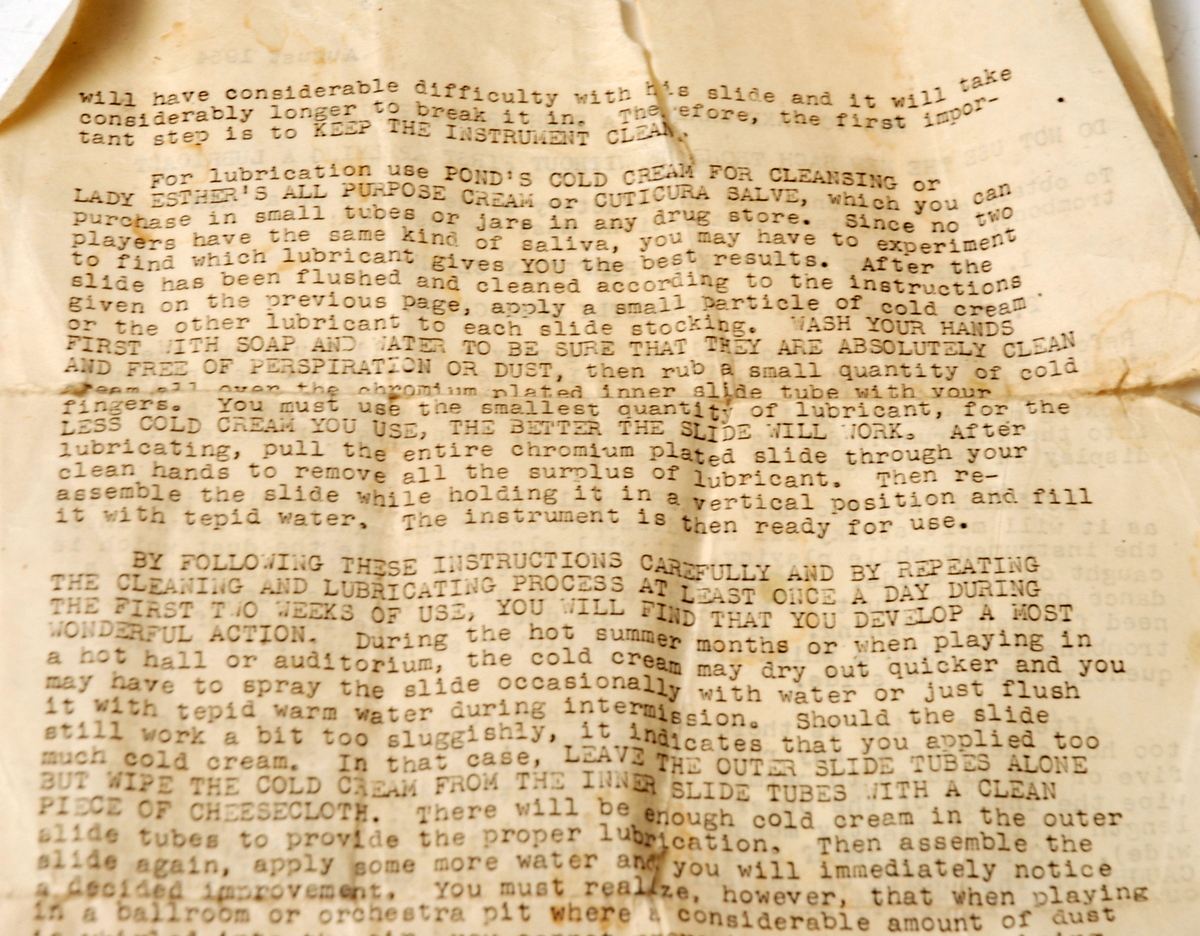 will have considerable difficulty with his slide and it will take
considerably longer to break it in. Therefore, the first impor-
tant step is to KEEP THE INSTRUMENT CLEAN.
For lubrication use POND'S COLD CREAM FOR CLEANSING or
LADY ESTHER'S ALL PURPOSE CREAM or CUTICURA SALVE, which you can
purchase in small tubes or jars in any drug store. Since no two
players have the same kind of saliva, you may have to experiment
to find which lubricant gives YOU the best results. After the
slide has been flushed and cleaned according to the instructions
given on the previous page, apply a small particle of cold cream
or the other lubricant to each slide stocking. WASH YOUR HANDS
FIRST WITH SOAP AND WATER TO BE SURE THAT THEY ARE ABSOLUTELY CLEAN
AND FREE OF PERSPIRATION OR DUST, then rub a small quantity of cold
cream all over the chromium plated inner slide tube with your
fingers. You must use the smallest quantity of lubricant, for the
LESS COLD CREAM YOU USE, THE BETTER THE SLIDE WILL WORK. After
lubricating, pull the entire chromium plated slide through your
clean hands to remove all the surplus of lubricant. Then re-
assemble the slide while holding it in a vertical position and fill
it with tepid water. The instrument is then ready for use.
BY FOLLOWING THESE INSTRUCTIONS CAREFULLY AND BY REPEATING
THE CLEANING AND LUBRICATING PROCESS AT LEAST ONCE A DAY DURING
THE FIRST TWO WEEKS OF USE, YOU WILL FIND THAT YOU DEVELOP A MOST
WONDERFUL ACTION. During the hot summer months or when playing in
a hot hall or auditorium, the cold cream may dry out quicker and you
may have to spray the slide occasionally with water or just flush
it with tepid warm water during intermission. Should the slide
still work a bit too sluggishly, it indicates that you applied too
much cold cream. In that case, LEAVE THE OUTER SLIDE TUBES ALONE
BUT WIPE THE COLD CREAM FROM THE INNER SLIDE TUBES WITH A CLEAN
PIECE OF CHEESECLOTH. There will be enough cold cream in the outer
slide tubes to provide the proper lubrication. Then assemble the
slide again, apply some more water and you will immediately notice
a decided improvement. You must realize, however, that when playing
in a ballroom or orchestra pit where a considerable amount of dust